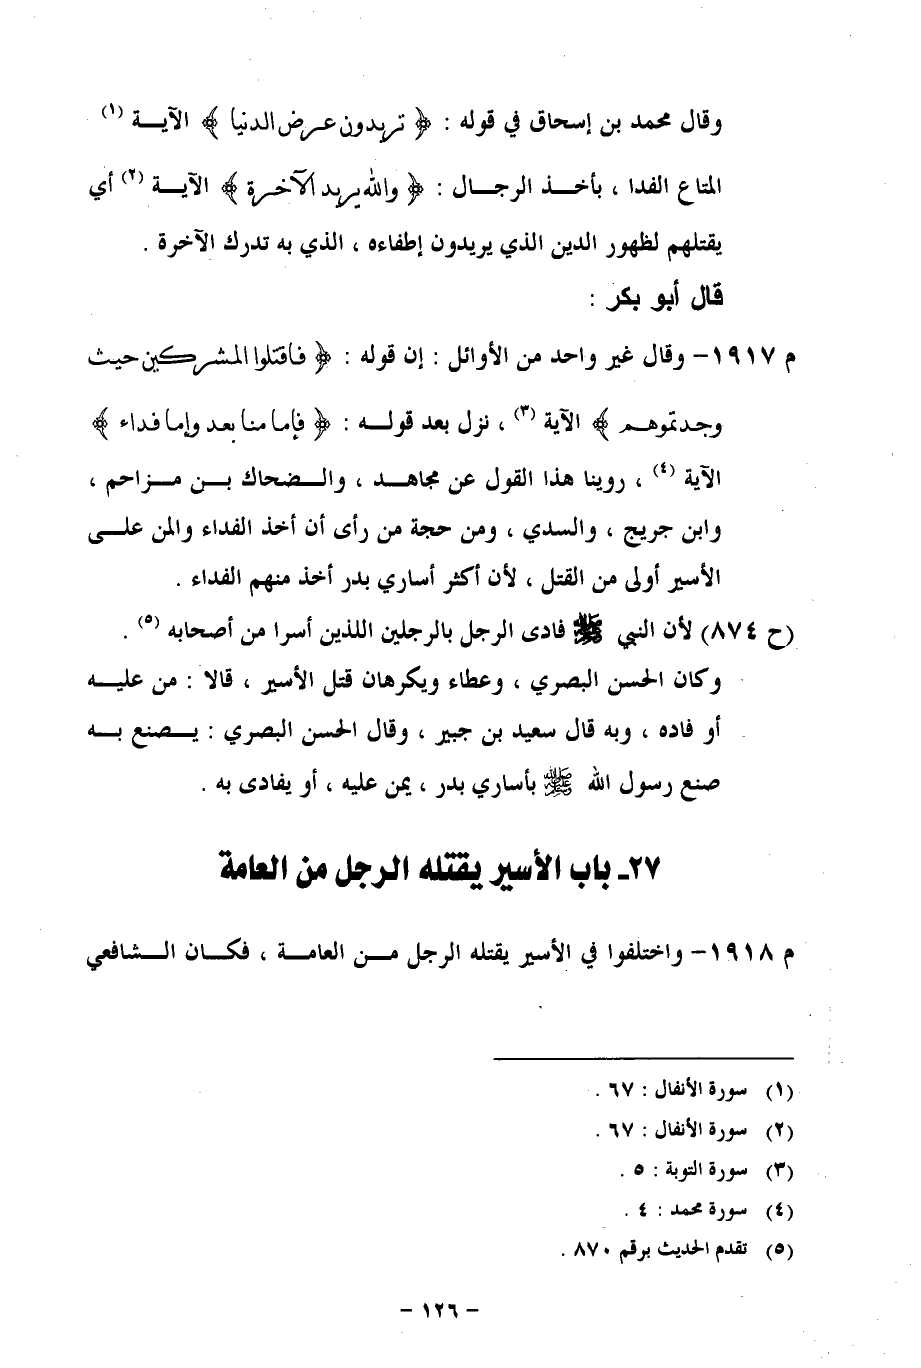 وقال محمد بن إسحاق في قوله : ﴿ تريدون عرض الدنيا ﴾ الآيـــة (١)
المتاع الفدا ، بأخـــذ الرجـــال : ﴿ والله يريد الآخرة ﴾ الآيـــة (٢) أي
يقتلهم لظهور الدين الذي يريدون إطفاءه ، الذي به تدرك الآخرة .
قال أبو بكر :
م ١٩١٧- وقال غير واحد من الأوائل : إن قوله : ﴿ فاقتلوا المشركين حيث
وجدتموهم ﴾ الآية (٣) ، نزل بعد قولـــه : ﴿ فإما منا بعد وإما فداء ﴾
الآية (٤) ، روينا هذا القول عن مجاهـــد ، والـــضحاك بـــن مـــزاحم ،
وابن جريج ، والسدي ، ومن حجة من رأى أن أخذ الفداء والمن علـــى
الأسير أولى من القتل ، لأن أكثر أساري بدر أخذ منهم الفداء .
(ح ٨٧٤) لأن النبي ﷺ فادى الرجل بالرجلين اللذين أسرا من أصحابه (٥) .
وكان الحسن البصري ، وعطاء ويكرهان قتل الأسير ، قالا : من عليـــه
أو فاده ، وبه قال سعيد بن جبير ، وقال الحسن البصري : يـــصنع بـــه
صنع رسول الله ﷺ بأساري بدر ، يمن عليه ، أو يفادى به .
٢٧ـ باب الأسير يقتله الرجل من العامة
م ١٩١٨- واختلفوا في الأسير يقتله الرجل مـــن العامـــة ، فكـــان الـــشافعي
(١) سورة الأنفال : ٦٧ .
(٢) سورة الأنفال : ٦٧ .
(٣) سورة التوبة : ٥ .
(٤) سورة محمد : ٤ .
(٥) تقدم الحديث برقم ٨٧٠ .
- ١٢٦ -